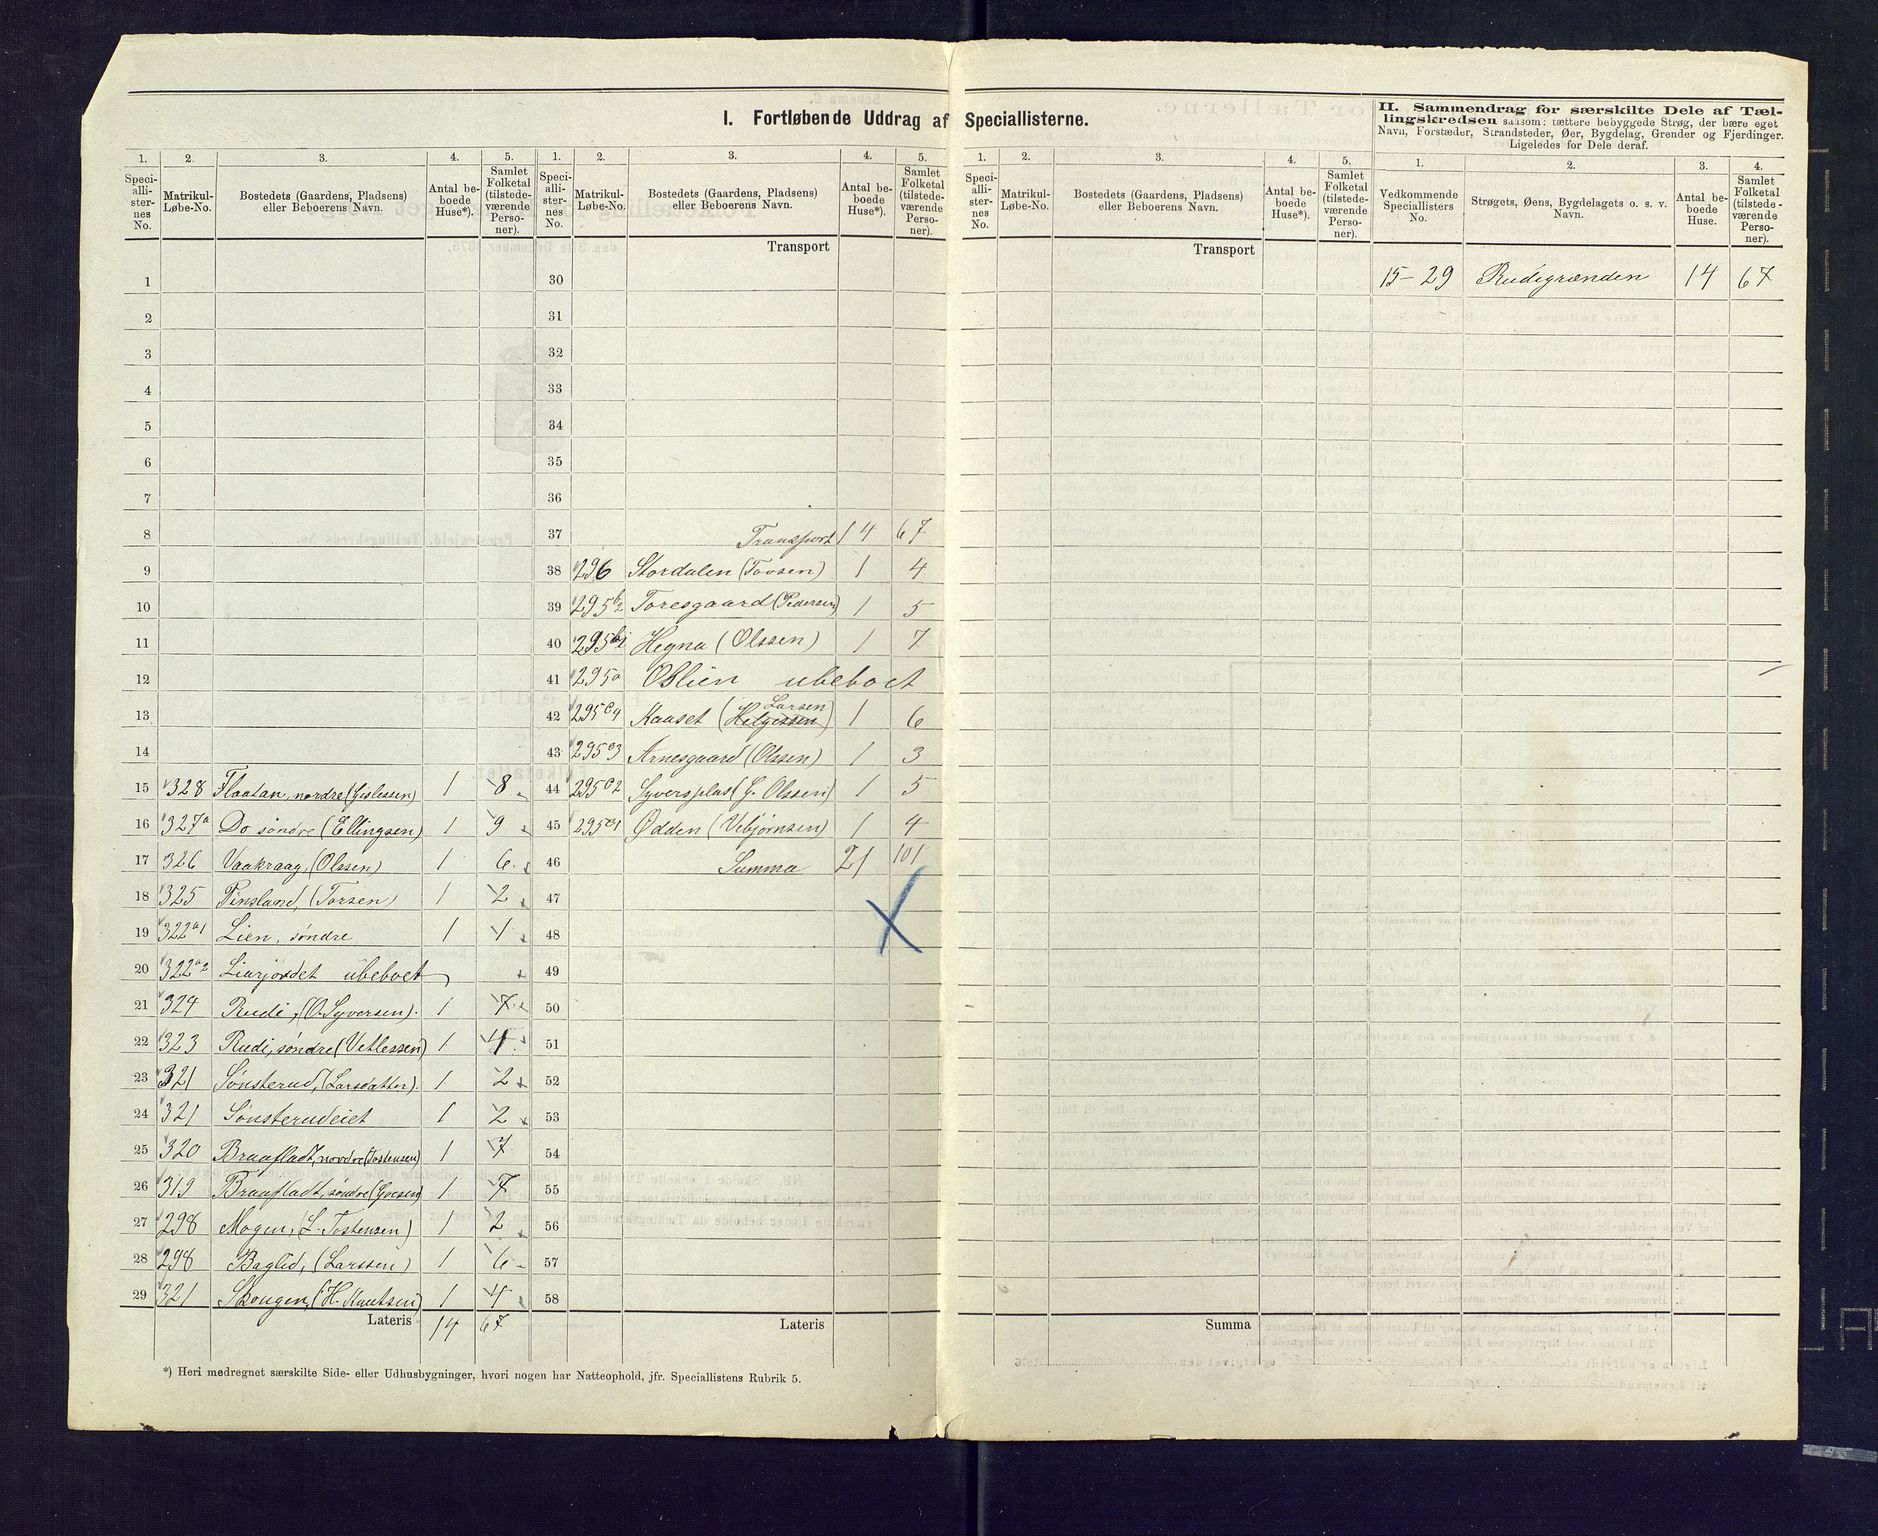 I. Fortløbende Uddrag af Speciallisterne.
II. Sammendrag for særskilte Dele af Tællingskredsen saasom: tættere bebyggede Strøg, der bære eget
Navn, Forstæder, Strandsteder, Øer, Bygdelag, Grender og Fjerdinger.
Ligeledes for Dele deraf.
1. 2. 3. 4. 5. 1. 2. 3. 4. 5. 1. 2. 3. 4. 5. 1. 2. 3. 4.
Speciallisternes No. Matrikul-Løbe-No. Bostedets (Gaardens, Pladsens) eller Beboerens Navn. Antal beboede Huse*). Samlet Folketal (tilstedeværende Personer).
Speciallisternes No. Matrikul-Løbe-No. Bostedets (Gaardens, Pladsens) eller Beboerens Navn. Antal beboede Huse*). Samlet Folketal (tilstedeværende Personer).
Speciallisternes No. Matrikul-Løbe-No. Bostedets (Gaardens, Pladsens) eller Beboerens Navn. Antal beboede Huse*). Samlet Folketal (tilstedeværende Personer).
Vedkommende Speciallisters No. Strøgets, Øens, Bygdelagets o. s. v. Navn. Antal beboede Huse. Samlet Folketal (tilstedeværende Personer).
1
2
3
4
5
6
7
8
9
10
11
12
13
14
15 328 Flaatan, nordre (Gislessen) 1 8
16 327a Do søndre (Ellingsen) 1 9
17 326 Vaakraag, (Olssen) 1 6
18 325 Pinsland, (Torsen) 1 2
19 322a1 Lien, søndre 1 1
20 322a2 Liarjordet ubeboet
21 324 Rudi, (O. Syversen). 1 7
22 323 Rudi, søndre (Vetlessen) 1 4
23 321 Sønsterud, (Larsdatter). 1 2
24 321 Sønsterudeiet 1 2
25 320 Braafladt, nordre (Tostensen) 1 7
26 319 Braafladt, søndre 1 7
27 298 Mogen, (L. Tostensen) 1 2
28 298 Baglid, (Larssen) 1 6
29 321 Skougen, (H. Knutsen) 1 4
Lateris 14 67
Transport
30
31
32
33
34
35
36
37 Transport 14 67
38 296 Stordalen (Tovsen) 1 4
39 295b2 Toresgaard (Pedersen) 1 5
40 295b1 Hegna (Olssen) 1 7
41 295a Oslien ubeboet
42 295c4 Kaaset (Helgessen) Larsen 1 6
43 295c3 Arnesgaard (Olssen) 1 3
44 295c2 Syversplas (G. Olssen) 1 5
45 295c1 Ødden (Vebjørnsen) 1 4
46 Summa 21 101
47
48
49
50
51
52
53
54
55
56
57
58
Lateris
Transport
Summa
15–29 Rudigrænden 14 67
*) Heri medregnet særskilte Side- eller Udhusbygninger, hvori nogen har Natteophold, jfr. Speciallistens Rubrik 5.